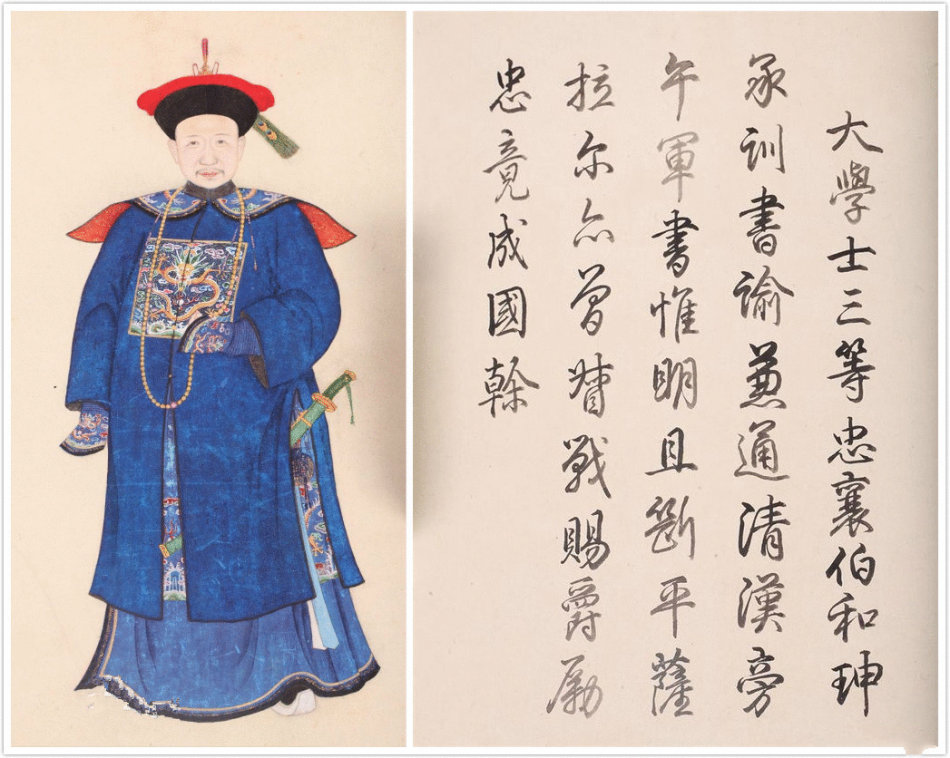 大學士三等忠襄伯和珅
承訓書諭兼通清漢旁
午軍書惟明且斷平薩
拉尔亦曽督戰賜爵勵
忠竟成國幹